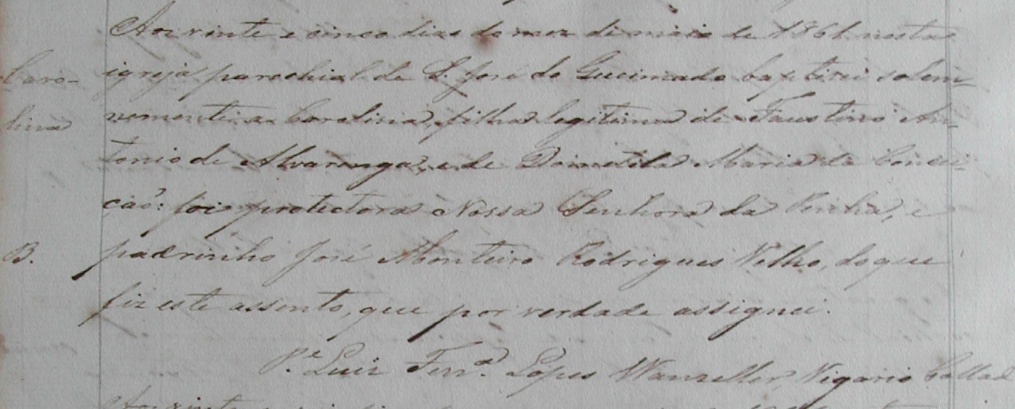 Aos vinte e cinco dias do mez de maio de 1861 nesta
Caro-
igreja parochial de S. José do Queimado baptisei solem-
lina
nemente a Carolina, filha legitima de Faustino An-
tonio de Alvarenga, e de Dometila Maria da Concei-
ção: foi protectora Nossa Senhora da Penha, e
B.
padrinho José Monteiro Rodrigues Velho, do que
fiz este assento, que por verdade assignei.
Pe. Luiz Ferra. Lopes Wanzeller Vigario Collad
Aos vinte